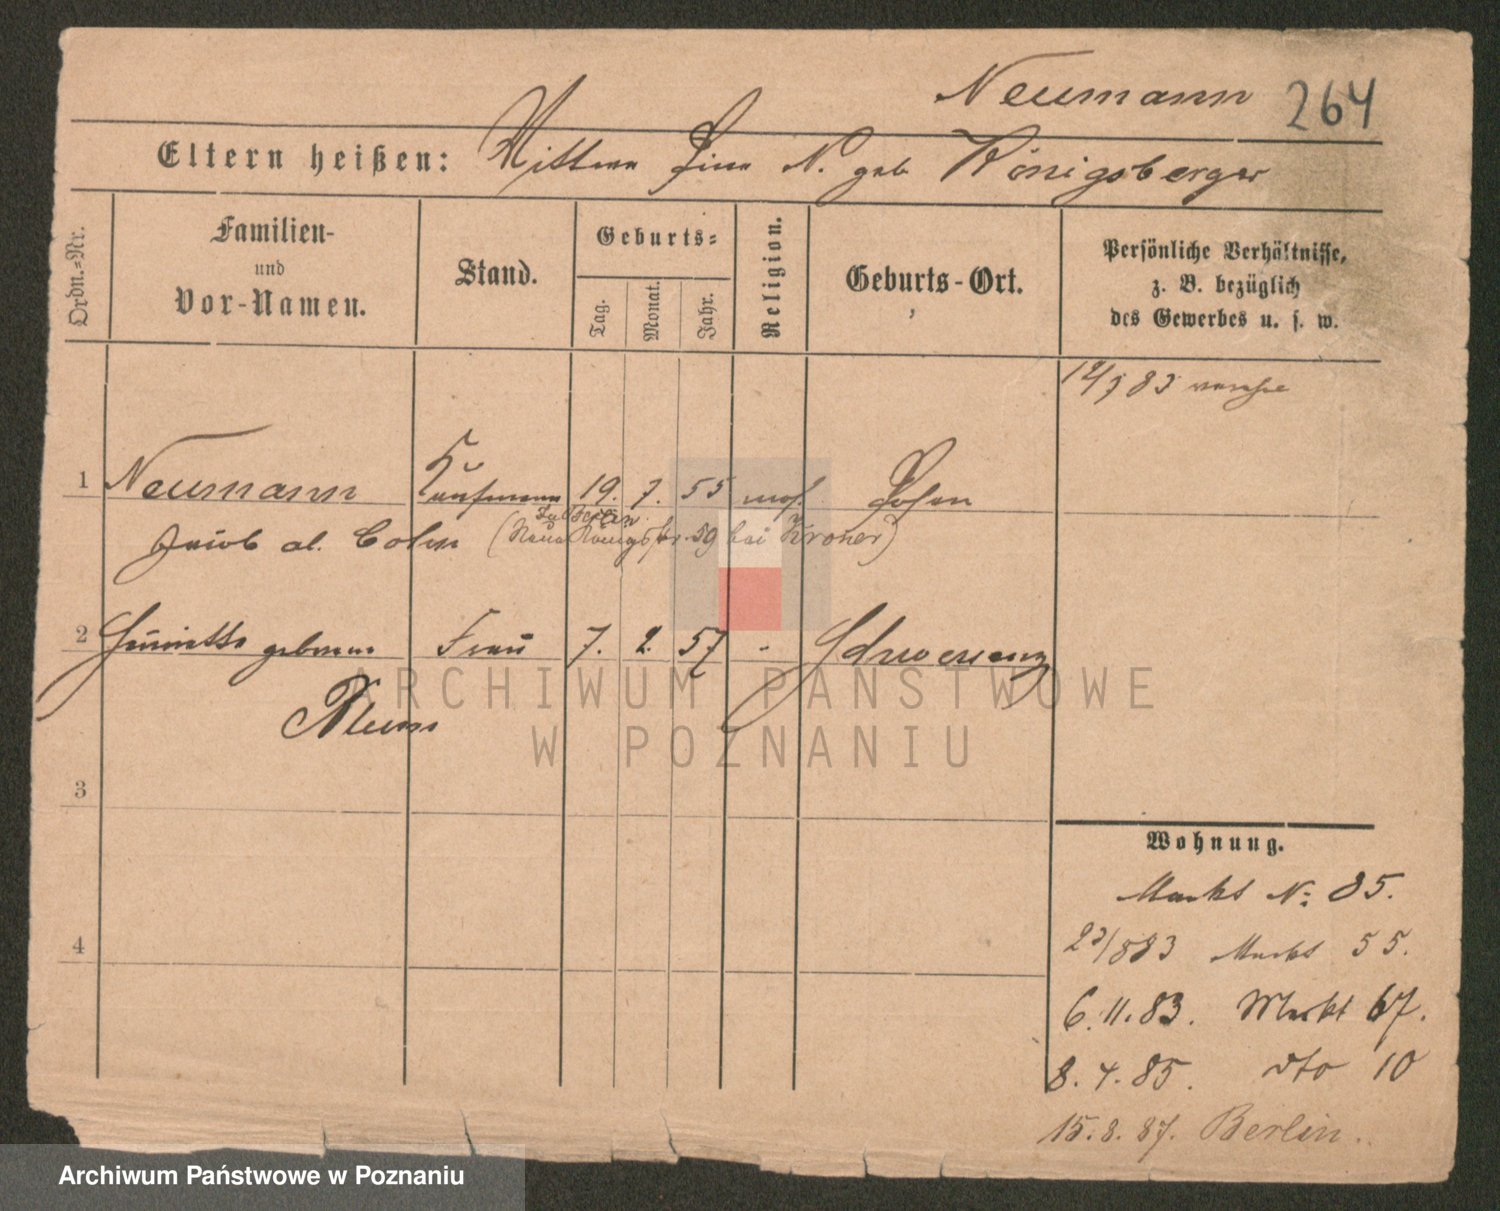 Neumann 264
Eltern heißen: Wittwe Line N. geb Königsberger
Ordn.-Nr.
Familien-
und
Vor-Namen.
Stand.
Geburts-
Tag.
Monat.
Jahr.
Religion.
Geburts-Ort.
Persönliche Verhältnisse,
z. B. bezüglich
des Gewerbes u. s. w.
83
1 Neumann Kaufmann 19. 7. 55 mos. Posen
Jacob al. Cohn (Neue Königstr. 59 bei Kroner)
in Berlin
2 Henriette geborene Frau 7. 2. 57 - Schwersenz
Blum
3
4
Wohnung.
Markt No 85.
83 Markt 55.
6.11.83. Markt 67.
8.4.85. dto 10
15.8.87. Berlin.
ARCHIWUM PAŃSTWOWE
W POZNANIU
Archiwum Państwowe w Poznaniu